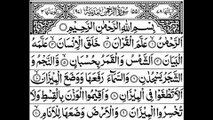 بِسْمِ اللّٰهِ الرَّحْمٰنِ الرَّحِيْمِ
اَلرَّحْمٰنُ ۙ عَلَّمَ الْقُرْاٰنَ ؕ خَلَقَ الْاِنْسَانَ ۙ عَلَّمَهُ
الْبَيَانَ ۙ اَلشَّمْسُ وَالْقَمَرُ بِحُسْبَانٍ ۙ وَّالنَّجْمُ وَ
الشَّجَرُ يَسْجُدٰنِ ۙ وَالسَّمَآءَ رَفَعَهَا وَوَضَعَ
الْمِيْزَانَ ۙ اَلَّا تَطْغَوْا فِى الْمِيْزَانِ ۙ وَاَقِيْمُوا الْوَزْنَ بِالْقِسْطِ وَلَا
تُخْسِرُوا الْمِيْزَانَ ۙ وَالْاَرْضَ وَضَعَهَا